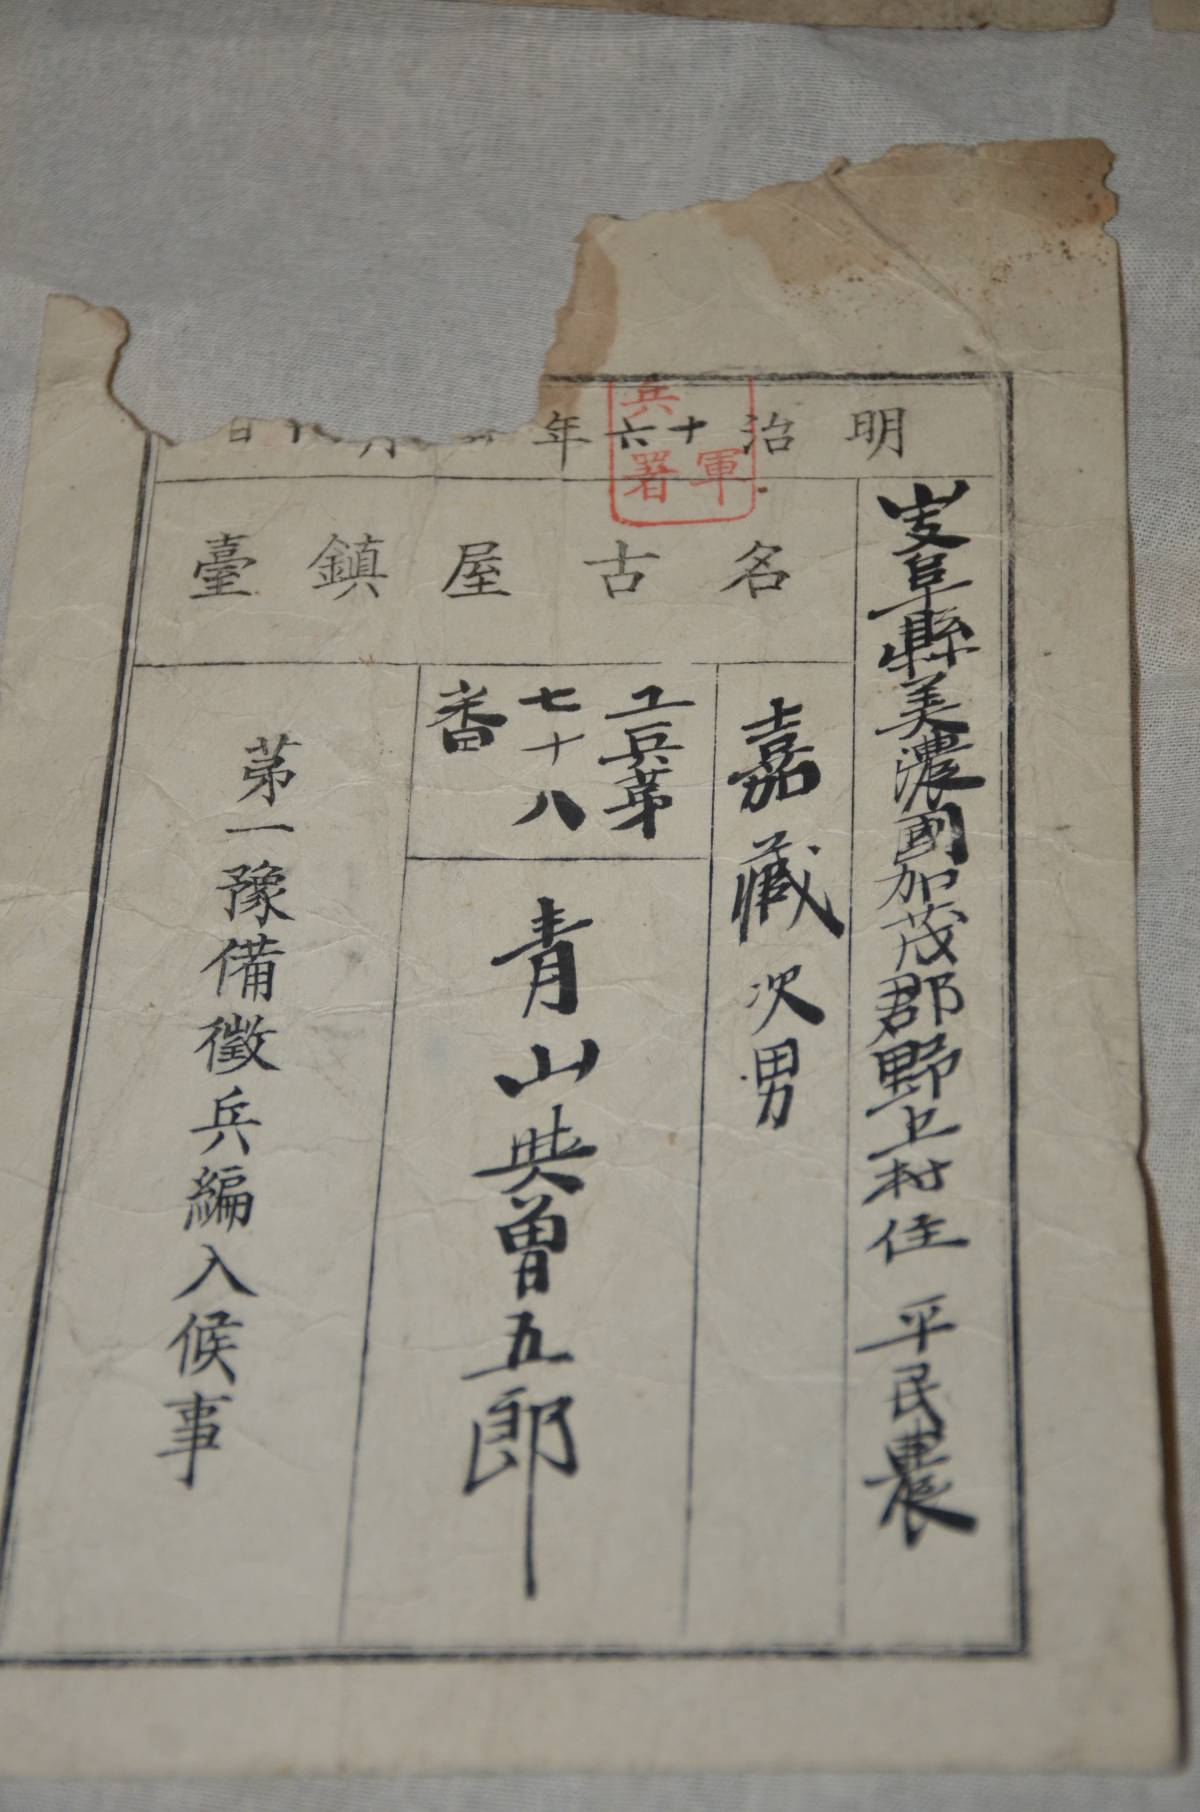 明治十六年 月 日
兵
軍署
岐阜縣美濃國加茂郡野上村住 平民農
名古屋鎮臺
嘉藏次男
工兵第
七十八
番
青山典曽五郎
第一豫備徵兵編入候事